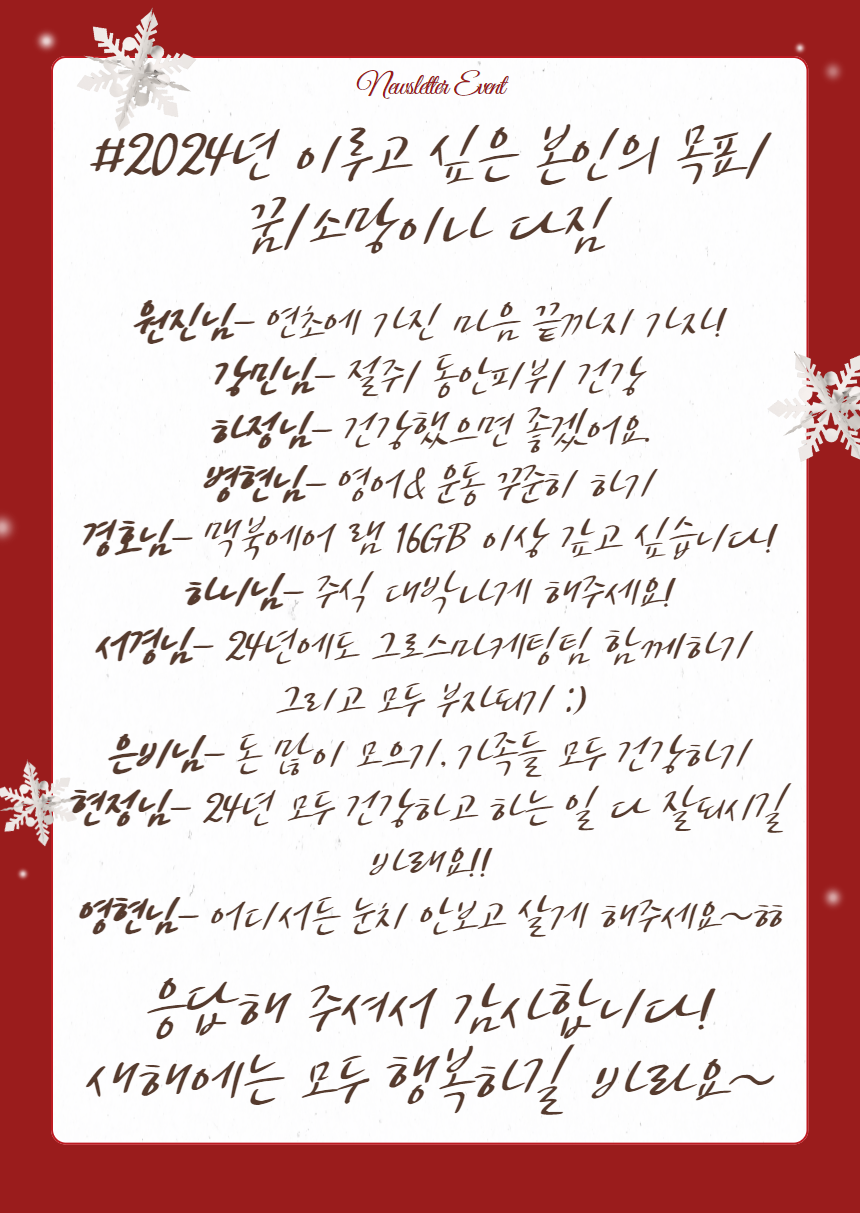 Newsletter Event
#2024년 이루고 싶은 본인의 목표/
꿈/소망이나 다짐
원진님- 연초에 가진 마음 끝까지 가자!
강민님- 절주/ 동안피부/ 건강
하정님- 건강했으면 좋겠어요.
병현님- 영어& 운동 꾸준히 하기
경호님- 맥북에어 램 16GB 이상 갖고 싶습니다!
하니님- 주식 대박나게 해주세요!
서경님- 24년에도 그로스마케팅팀 함께하기
그리고 모두 부자되기 :)
은비님- 돈 많이 모으기. 가족들 모두 건강하기
현정님- 24년 모두 건강하고 하는 일 다 잘되시길
바래요!!
영현님- 어디서든 눈치 안보고 살게 해주세요~ㅎㅎ
응답해 주셔서 감사합니다!
새해에는 모두 행복하길 바라요~